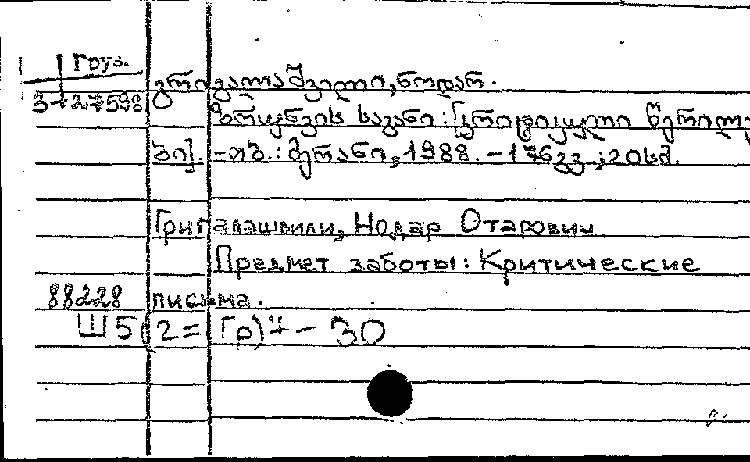 Груз.
3-27598
გრიგალაშვილი, ნოდარ.
ზრუნვის საგანი: [კრიტიკული წერილე
ბი]. - თბ.: მერანი, 1988. - 176 გვ.; 20 სმ.
Григалашвили, Нодар Отарович
Предмет заботы: Критические
88228 письма.
Ш5(2=Гр)7-30